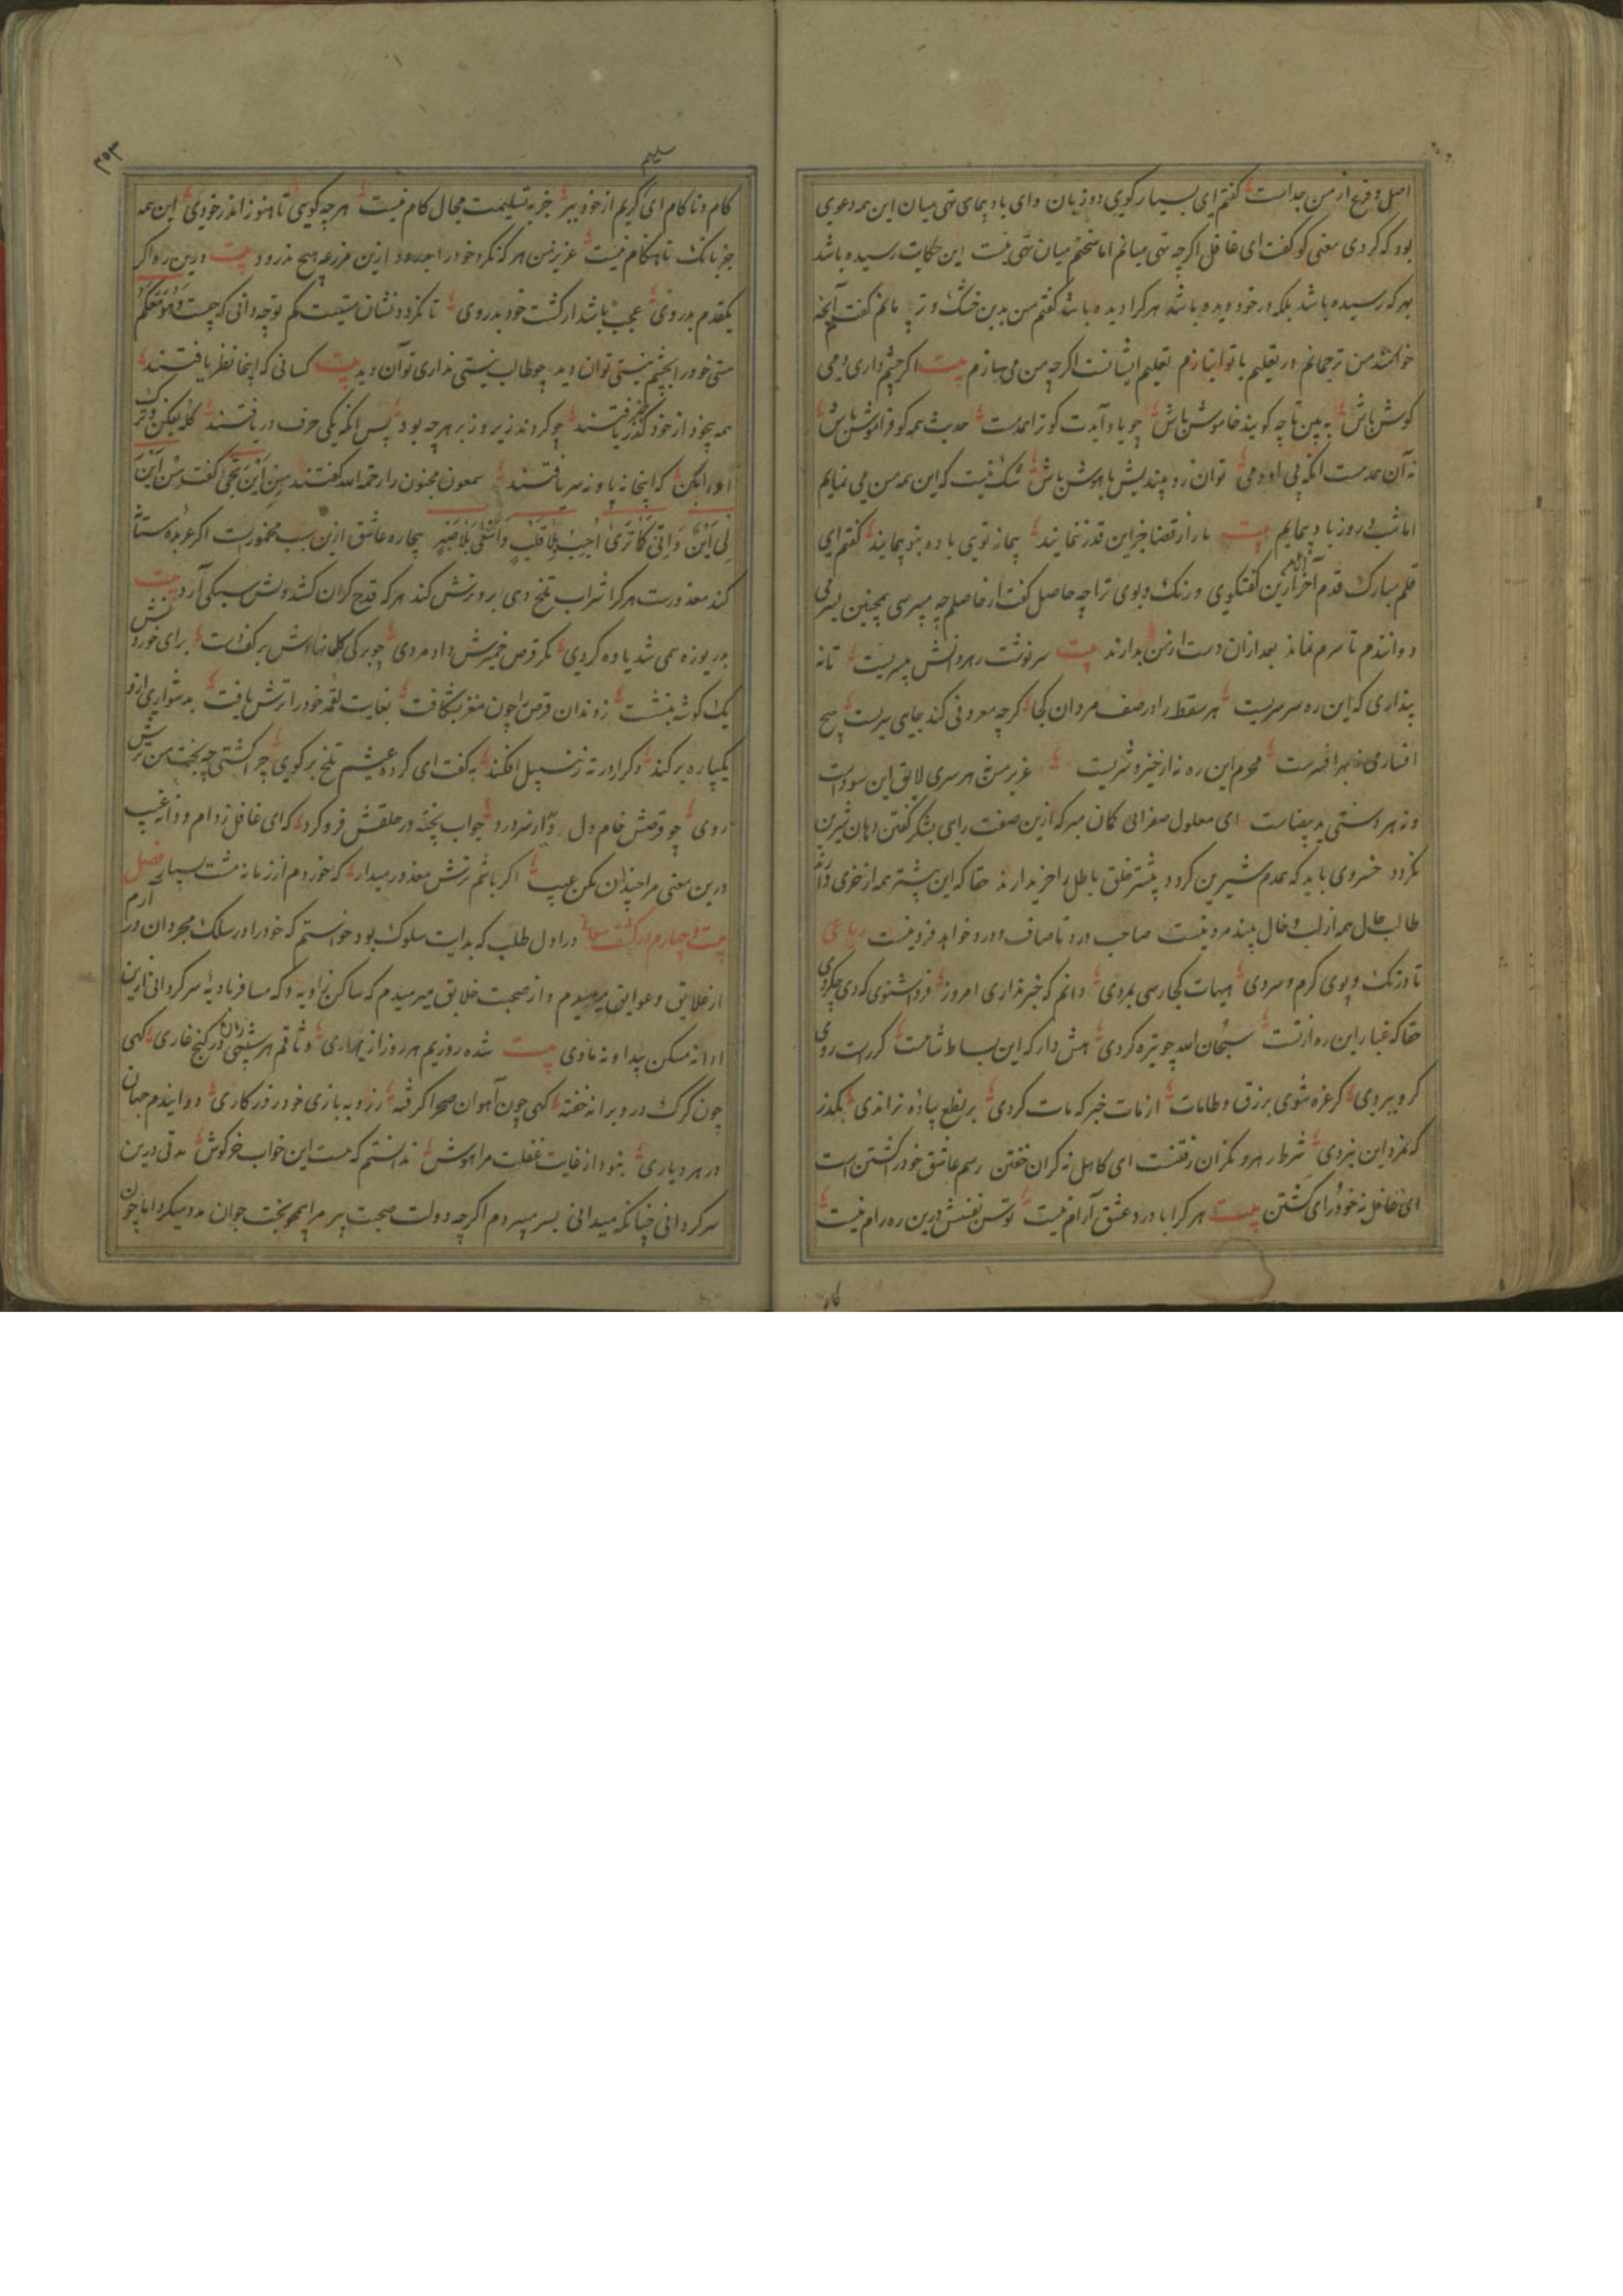 اصل و فرع از من جداست گفتم ای بسیار گوی دو زبان وای باد پیمای تهی میان این همه دعوی
بود که کردی معنی کو گفت ای غافل اگرچه تهی میانم اما سخنم میان تهی نیست این حکایت رسیده باشد
بهر که رسیده باشد بلکه در خود دیده باشد هر کرا دیده باشد گفتم من بدین خشک و تر مانم گفت آنچه
خوانند من ترجمانم در تعلیم با تو انبازم تعلیم ایشانست اگرچه من می سازم بیت اگر چشم داری دمی
گوش باش ببین تا چه گویند خاموش باش چو یاد آیدت کو ترا همدمست حدیث همه کو فراموش باش
نه آن همدمست انکه بی او دمی توان زد بیندیش باهوش باش شک نیست که این همه من می نمایم
اما شب و روز باد پیمایم بیت ما را از قضا جز این قدر ننمایند پیمانه تویی باده بتو پیمایند گفتم ای
قلم مبارک قدم آخر ازین گفتگوی و رنگ و بوی ترا چه حاصل گفت از حاصلم چه می پرسی همچنین بسر می
دوانندم تا سرم نماند بعد ازان دست از من بدارند بیت سرنوشت رهروانش بر سریست تا نه
پنداری که این ره سرسریست هر سقط را در صف مردان کجا گرچه معروفی کند جایی سریست هیچ
افساری نه بهر افسرست محرم این ره نه از خیر و شریست عزیز من هر سری لایق این سوداست
و نه هر دستی ید بیضاست ای معلول صفرائی گمان مبر که ازین صفت رای بشکر گفتن دهان شیرین
نگردد خسروی باید که همدم شیرین گردد بیشتر خلق باطل را خریدارند حقا که این بیشتر همه از خری دارند
طالب حال همه از لب و خال بیند مرد نیست صاحب درد تا صاف و درد خواهد فرد نیست رباعی
تا در تک و پوی گرم و سردی هیهات کجا رسی بمردی دانم که خبر نداری امروز فردا شنوی که دی چه کردی
حقا که غبار این ره از تست سبحان الله چو تیره کردی هش دار که این بساط شاهست کز راست روی
گرو ببردی گر غره شوی بزرق و طامات از مات خبر که مات کردی بر نطع پیاده نراندی بگذر
که نه مرد این نبردی شرط رهرو نگران رفتنست ای کاهل نه گران خفتن رسم عاشق خود را کشتن است
ای غافل نه خودرای گشتن بیت هر کرا با درد عشق آرام نیست توسن نفسش درین ره رام نیست
کام
۳۵۳
کام و ناکام ای کریم از خود ببر جز به تسلیمت مجال کام نیست هرچه گویی تا هنوز اندر خودی این همه
جز بانگ ناهنگام نیست عزیز من هر که نکرد خود را بدرود ازین مزرعه هیچ ندرود بیت درین راه اگر
یکقدم بدروی عجب باشد ار کشت خود بدروی تا نگردد نشان هستیت گم تو چه دانی که چیست وهو معکم
هستی خود را بچشم نیستی توان دید چو طالب نیستی نداری توان دید بیت کسانی که اینجا نظر یافتند
همه بیخود از خود گذر یافتند چو کردند زیر و زبر هرچه بود پس انکه یکی حرف دریافتند
که اینجا نه پا و نه سر یافتند سمعون مجنون را رحمه الله گفتند من این تجیٔ گفت من این
لی این بیچاره عاشق ازین سبب مخمورست اگر عربده مستانه
کند معذورست هر کرا شراب تلخ دمی برو ترش کند هر که قدح گران کشد دلش سبکی آرد بیت
بدریوزه می شد یاوه گردی مگر قرص خمیرش داد مردی چو برگی گلها نهادش بر کف دست برای خوردنش
یک گوشه بنشست ز دندان قرص را چون مغز بشکافت بغایت لقمه خود را ترش یافت بدشواری ازو
یکپاره برکند دگر را در ته زنبیل افکند به گفت ای کرده عیشم تلخ برگوی چرا گشتی چو بخت من ترش
روی چو قرصش خام دل جواب پخته در حلقش فرو کرد که ای غافل ز دام و دانه غیب
درین معنی مرا چندان مکن عیب اگر باشم ترش معذور میدار که خوردم از زمانه مشت بسیار فصل
بیست و چهارم در کشف معانی در اول طلب که بدایت سلوک بود خواستم که خود را در سلک مجردان درآرم
از علایق و عوایق می بریدم و از صحبت خلایق می رمیدم گه ساکن زاویه و گه مسافر بادیه سرگردانی ازین
اوا نه مسکن پیدا و نه ماوی بیت شده روزیم هر روز از دیاری وثاقم هر شبی در کنج غاری گهی
چون گرگ در ویرانه خفته گهی چون آهوان صحرا گرفته دوانیدم جهان
در هر دیاری بنود از غایت غفلت مرا هوش ندانستم که هست این خواب خرگوش مدتی درین
سرگردانی چنانکه میدانی بسر می بردم اگرچه دولت صحبت پیر مرا همچو بخت جوان مدد میکرد اما چون